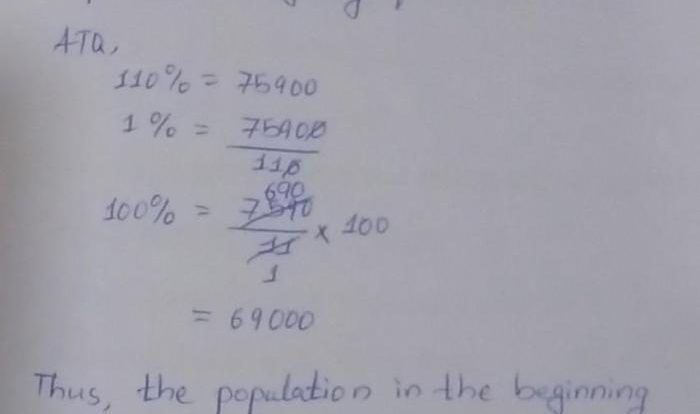 ATQ,
110% = 75900
1% = 75900
110
690
100% = 7590 × 100
11
1
= 69000
Thus, the population in the beginning